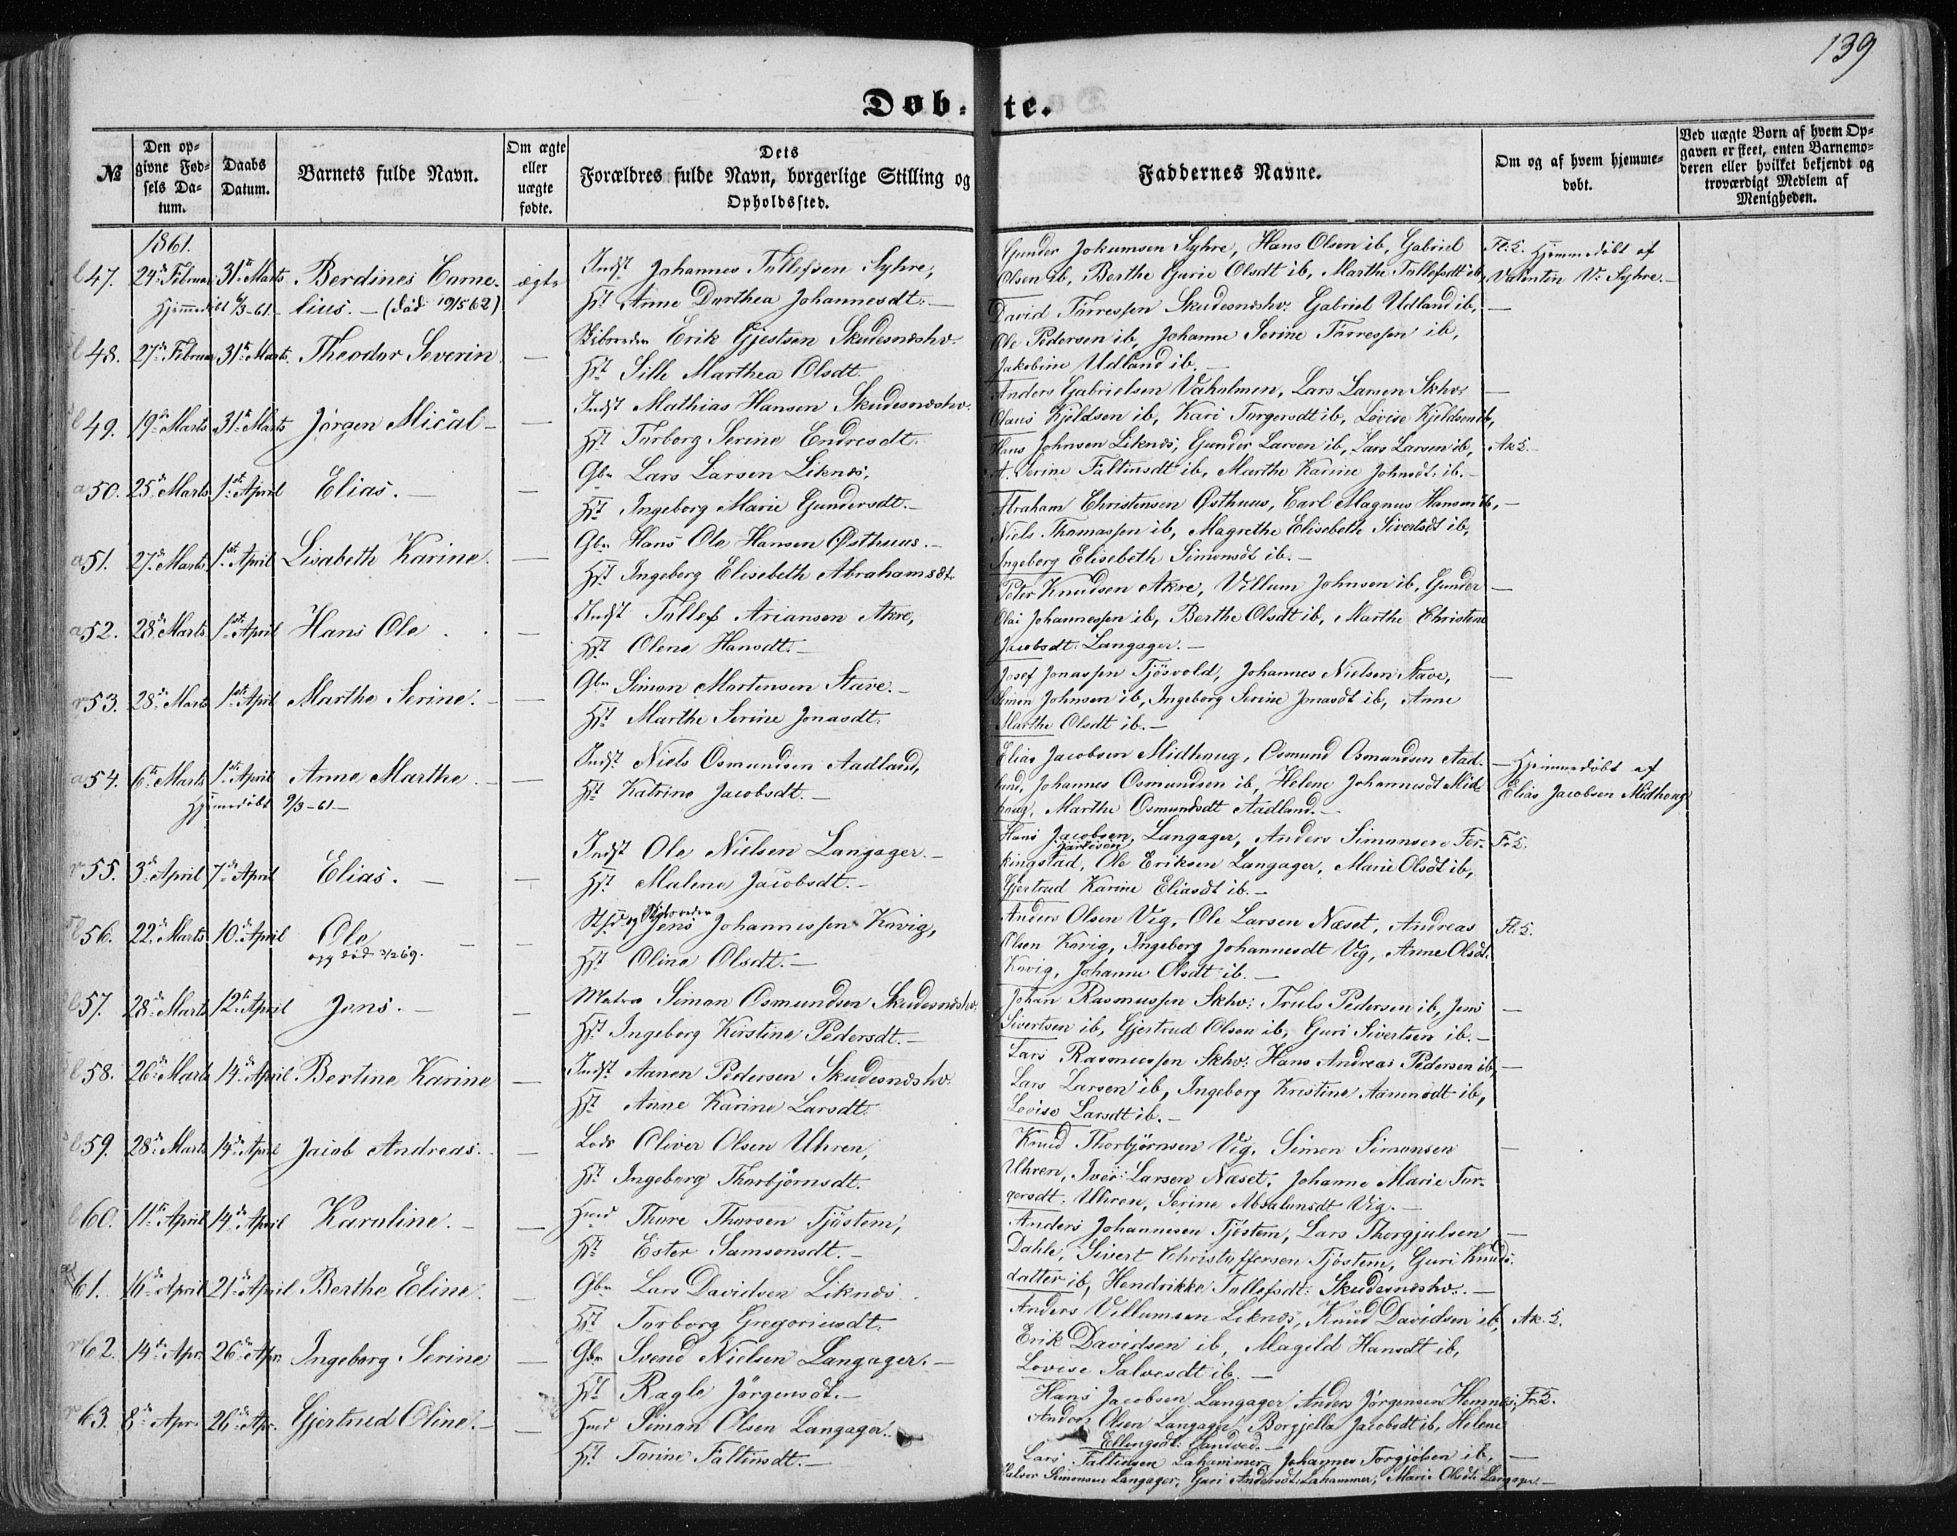 139
Døb-te.
№
Den op-
givne Fød-
sels Da-
tum.
Daabs
Datum.
Barnets fulde Navn.
Om ægte
eller
uægte
fødte.
Dets
Forældres fulde Navn, borgerlige Stilling og
Opholdssted.
Faddernes Navne.
Om og af hvem hjemme-
døbt.
Ved uægte Børn af hvem Op-
gaven er skeet, enten Barnemo-
deren eller hvilket bekjendt og
troværdigt Medlem af
Menigheden.
1861.
47. 24de Februar 31te Marts Berdines Corne- ægte
Hjemmedøbt -61 - lius. - (död 19/5 62)
Indst Johannes Tollefsen Syhre,
Hst Anne Dorthea Johannesdt. -
Gunder Jokumsen Syhre, Hans Olsen ib, Gabriel
Olsen ib, Berthe Gurie Olsdt ib, Marthe Tollefsdt ib,
Hjemmedöbt af
Valentin V. Syhre. -
48. 27de Februar 31te Marts. Theodor Severin -
Erik Gjestsen Skudesneshv.
Hst Sille Marthea Olsdt.
David Torressen Skudesneshv. Gabriel Udland ib, -
Ole Pedersen ib, Johanne Serine Torressen ib,
Jakobine Udland ib. -
49. 19de Marts 31te Marts Jörgen Mical - -
Indst Mathias Hansen Skudesneshv.
Hst Torborg Serine Endresdt.
Anders Gabrielsen Vaholmen, Lars Larsen Skhv: -
Olaus Kjeldsen ib, Kari Torgersdt ib, Lovise Kjeldsen ib,
50. 25de Marts 1ste April Elias. - -
Gbr Lars Larsen Liknes,
Hst Ingeborg Marie Gundersdt. -
Hans Johnsen Liknes, Gunder Larsen ib, Lars Larsen ib, Ak.
A. Serine Faltinsdt ib, Marthe Karine Johnsdt. ib. -
51. 27de Marts 1ste April Lisabeth Karine. -
Gbr Hans Ole Hansen Østhuus. -
Hst Ingeborg Elisebeth Abrahamsdt.
Abraham Christensen Østhuus, Carl Magnus Hansen ib, -
Niels Thomassen ib, Magrethe Elisebeth Sivertsdt ib,
Ingeborg Elisebeth Simonsdt ib. -
52. 28de Marts 1ste April Hans Ole -
Indst Tollef Ariansen Akre,
Hst Olene Hansdt. -
Peter Knudsen Akre, Villum Johnsen ib, Gunder -
Olai Johannessen ib, Berthe Olsdt ib, Marthe Christine
Jacobsdt: Langager. -
53. 28de Marts 1ste April Marthe Serine. - -
Gbr Simon Mortensen Stave. -
Hst Marthe Serine Jonasdt.
Josef Jonassen Tjösvold, Johannes Nielsen Stave, -
Simon Johnsen ib, Ingeborg Serine Jonasdt ib, Anne
Marthe Olsdt ib. -
54. 6te Marts 1ste April Anne Marthe. -
Hjemmedöbt 9/3-61 -
Indst Niels Osmundsen Aadland,
Hst Katrine Jacobsdt. -
Elias Jacobsen Midhoug, Osmund Osmundsen Aad-
land, Johannes Osmundsen ib, Helene Johannesdt Mid-
houg, Marthe Osmundsdt Aadland. -
- Hjemmedöbt af
Elias Jacobsen Midhoug.
55. 3de April 7de April Elias. - -
Indst Ole Nielsen Langager. -
Hst Malene Jacobsdt. -
Hans Jacobsen Langager, Anders Simonsen Fer-
kingstad, Ole Eriksen Langager, Marie Olsdt ib,
Gjertrud Karine Eliasdt ib. -
56. 22de Marts 10de April Ole - -
död 69.
Jens Johannessen Kavig,
Hst Oline Olsdt. -
Anders Olsen Vig, Ole Larsen Næset, Andreas
Olsen Kavig, Ingeborg Johannesdt Vig, Anne Olsdt.
Kavig, Johanne Olsdt ib. -
57. 28de Marts 12te April Jens. - -
Matros Simon Osmundsen Skudesneshv.
Hst Ingeborg Kerstine Pedersdt. -
Johan Rasmussen Skhv: Truls Pedersen ib, Jens -
Sivertsen ib, Gjertrud Olsen ib, Guri Sivertsen ib. -
58. 26de Marts 14de April Bertine Karine -
Indst Aanen Pedersen Skudesneshv.
Hst Anne Karine Larsdt.
Lars Rasmussen Skhv: Hans Andreas Pedersen ib, -
Lars Larsen ib, Ingeborg Kristine Aanensdt ib,
Lovise Larsdt ib. -
59. 28de Marts 14de April Jacob Andreas. -
Lods Oliver Olsen Uhren,
Hst Ingeborg Thorbjörnsdt.
Knud Thorbjörnsen Vig, Simon Simonsen -
Uhren, Iver Larsen Næset, Johanne Marie Tor-
gersdt. Uhren, Serine Absalonsdt Vig. -
60. 11te April 14de April Karoline. - -
Huusmd Thore Thorsen Tjöstem,
Hst Ester Samsonsdt. -
Anders Johannesen Tjöstem, Lars Thorgjulsen -
Dahle, Sivert Christoffersen Tjöstem, Guri Knuds-
datter ib, Hendrikke Tollefsdt: Skudesneshv. -
61. 16de April 21de April Berthe Eline. -
Gbr Lars Davidsen Liknes.
Hst Torborg Gregoriusdt.
Anders Villumsen Liknes, Knud Davidsen ib, Ak.
Erik Davidsen ib, Magild Hansdt ib,
Lovise Salvesdt ib. -
62. 14de Apr. 26de Apr. Ingeborg Serine -
Gbr Svend Nielsen Langager. -
Hst Ragle Jörgensdt. -
Hans Jacobsen Langager Anders Jörgensen Hemnes,
Andor Olsen Langager, Borgjella Jacobsdt ib, Helene
Ellingsdt: Sandved. -
63. 8de Apr. 26de Apr. Gjertrud Oline. - -
Simon Olsen Langager. -
Hst Tonine Faltinsdt. -
Lars Faltinsen Lahammer, Johannes Torgjösen ib, -
Halvor Simonsen Langager, Guri Andersdt: Lahammer, Marie Olsdt: Langager. -